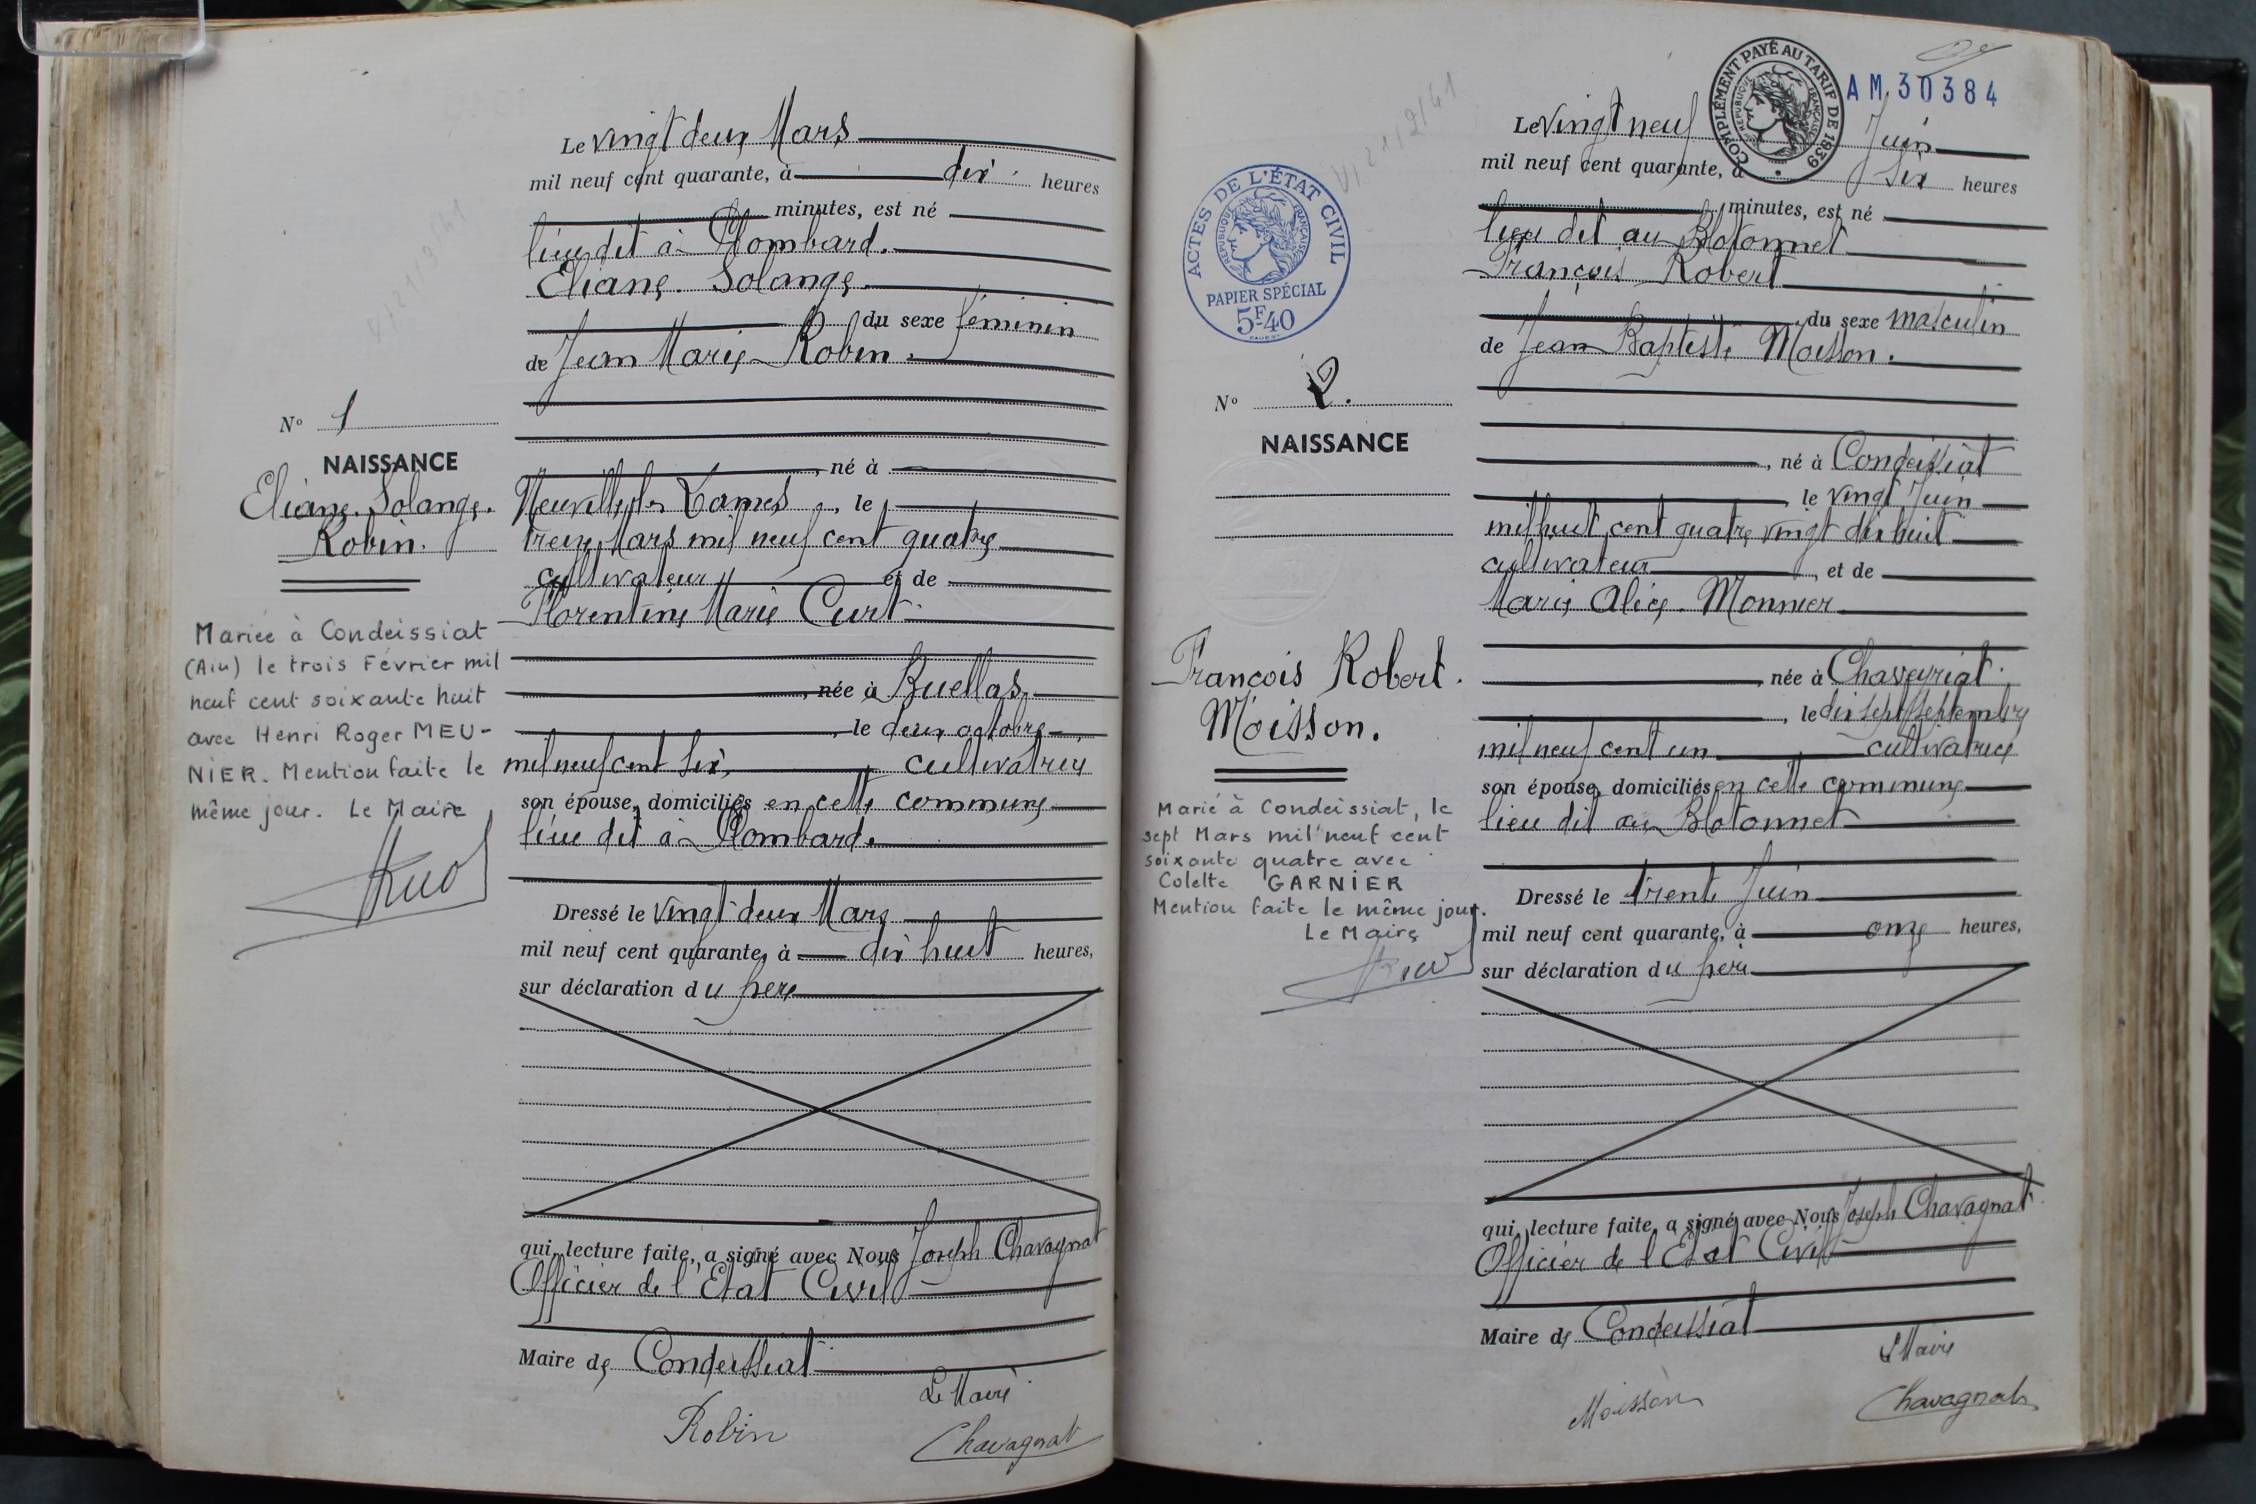 Le vingt deux Mars
mil neuf cent quarante, à dix heures
minutes, est né
lieu dit à Plombard.
Eliane. Solange.
du sexe féminin
de Jean Marie Robin.
Nº 1
NAISSANCE
Eliane. Solange.
Robin.
, né à
Neuville les Dames, le
treize Mars mil neuf cent quatre
cultivateur et de
Florentine Marie Curt
, née à Buellas,
, le deux octobre
mil neuf cent six, cultivatrice
son épouse, domiciliés en cette commune
lieu dit à Plombard.
Mariée à Condeissiat
(Ain) le trois Février mil
neuf cent soixante huit
avec Henri Roger MEU-
NIER. Mention faite le
même jour. Le Maire
Dressé le vingt deux Mars
mil neuf cent quarante, à dix huit heures,
sur déclaration du père
qui, lecture faite, a signé avec Nous Joseph Chavagnat
Officier de l'Etat Civil
Maire de Condeissiat
Le Maire
Robin
Chavagnat
COMPLÉMENT PAYÉ AU TARIF DE 1939
RÉPUBLIQUE FRANÇAISE
AM.30384
Le vingt neuf Juin
mil neuf cent quarante, à six heures
minutes, est né
lieu dit au Blotonnet
François Robert
du sexe masculin
de Jean Baptiste Moisson.
ACTES DE L'ÉTAT CIVIL
RÉPUBLIQUE FRANÇAISE
PAPIER SPÉCIAL
5F40
Nº 2.
NAISSANCE
François Robert.
Moisson.
, né à Condeissiat
le vingt Juin
mil huit cent quatre vingt dix huit
cultivateur, et de
Marie Alice. Monnier
née à Chaveyriat.
, le dix sept septembre
mil neuf cent un cultivatrice
son épouse, domiciliés en cette commune
lieu dit au Blotonnet
Marié à Condeissiat, le
sept Mars mil neuf cent
soixante quatre avec
Colette GARNIER
Mention faite le même jour.
Le Maire
Dressé le trente Juin
mil neuf cent quarante, à onze heures,
sur déclaration du père
qui, lecture faite, a signé avec Nous Joseph Chavagnat
Officier de l'Etat Civil
Maire de Condeissiat
Le Maire
Moisson
Chavagnat